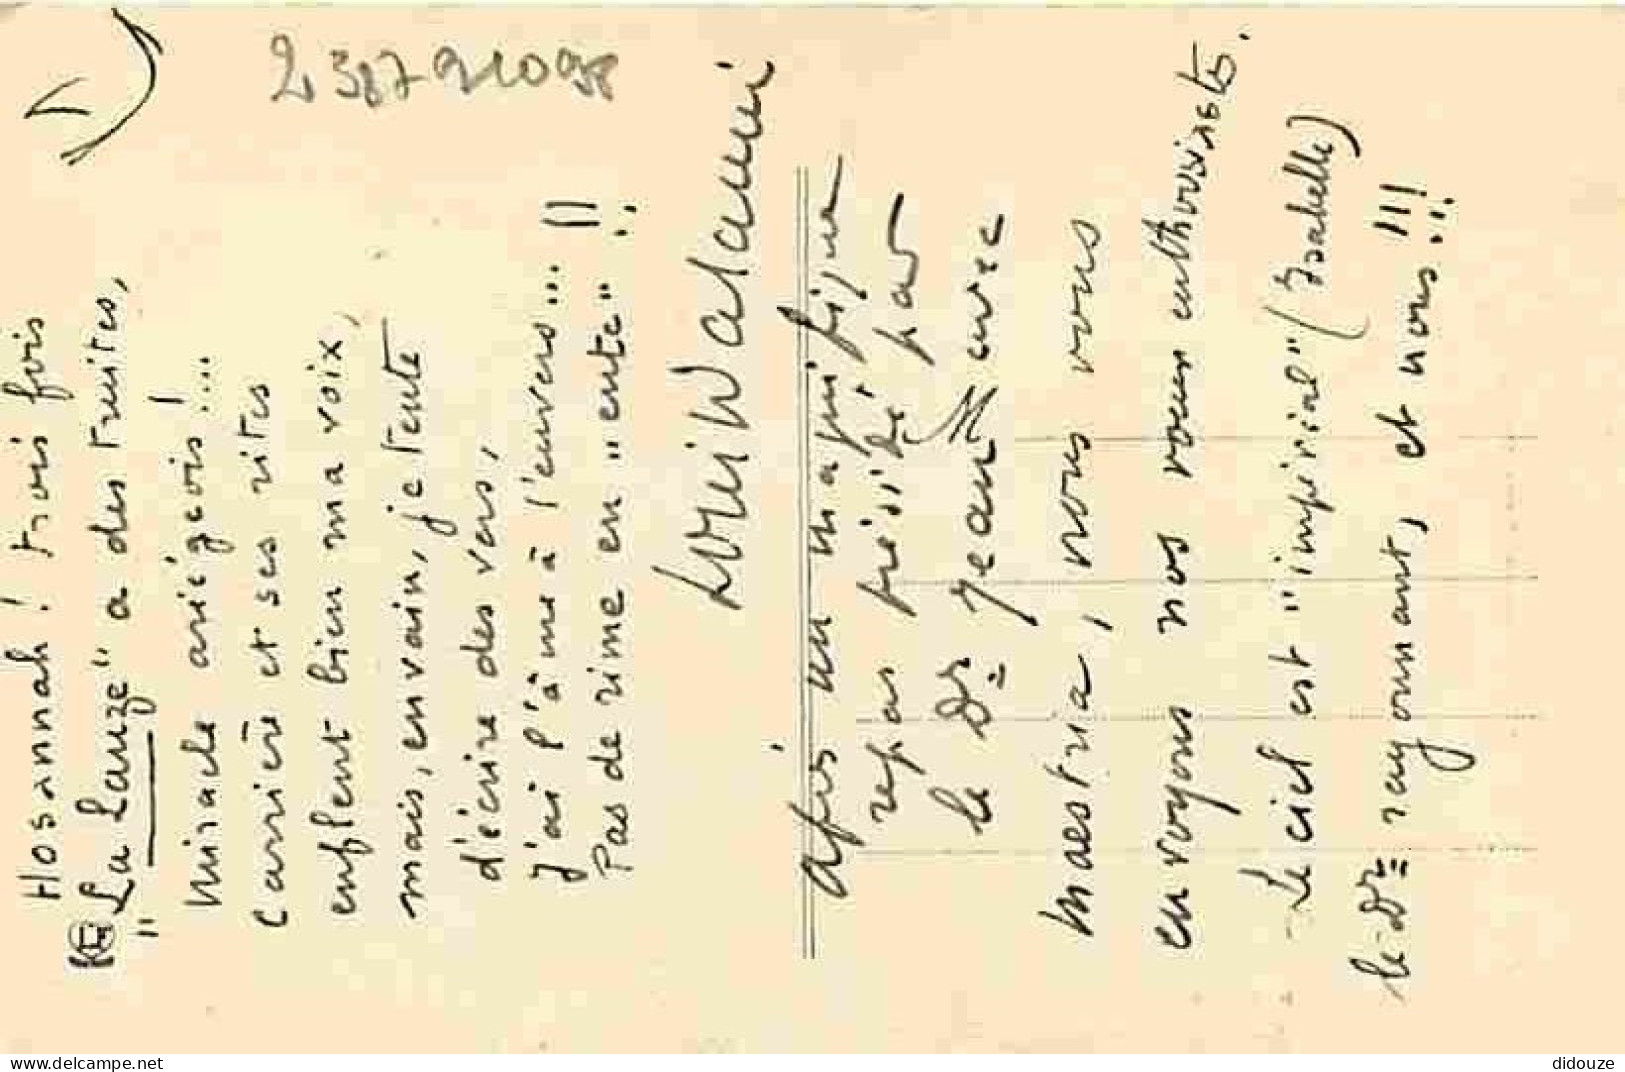 Hosannah ! trois fois
"La Lauzé" a des truites,
miracle ariégeois !....
Carrière et ses rites
enflent bien ma voix,
mais, en vain, je tente
d'écrire des vers,
j'ai l'âme à l'envers...
Pas de rime en "ente" !!
Après un magnifique
repas présidé par
le Dr Jean
maestria, nous vous
envoyons nos vœux enthousiastes.
Le ciel est "impérial" (Isabelle)
le Dr rayonnant, et nous !!!
2387921098
delcampe.net
didouze